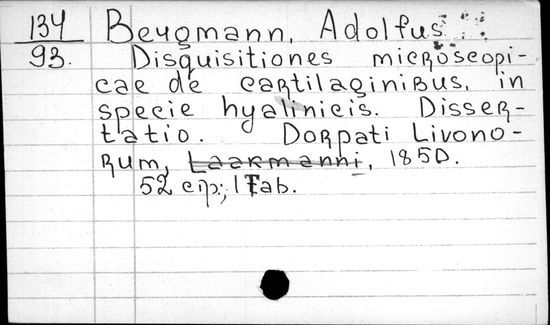 134 Bergmann, Adolfus
93. Disquisitiones microscopi-
cae de cartilaginibus, in
specie hyalinicis. Disser-
tatio. Dorpati Livono-
rum, Laakmanni, 1850.
52 стр.; 1 Tab.